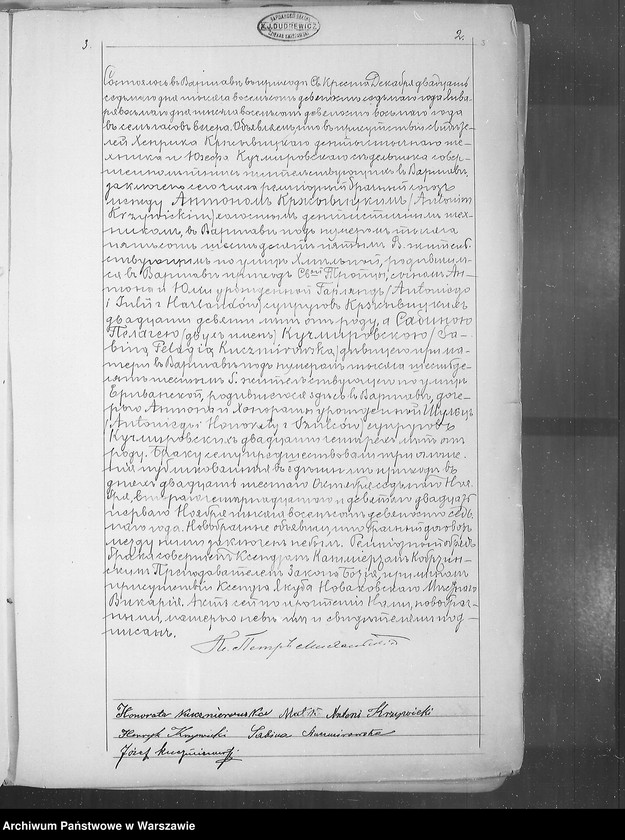 3.
ВАРШАВСКІЙ
K.J. DUDREWICZ
2.
3
Состоялось въ Варшавѣ въ приходѣ Св. Креста Декабря двадцать
седьмого дня тысяча восемьсотъ девяносто седьмого года Янва-
ря восьмаго дня тысяча восемьсотъ девяносто восьмаго года
въ семь часовъ вечера. Объявляемъ что въ присутствіи свидѣте-
лей Хенрика Кржывицкаго дентыстычнаго те-
хника и Юзефа Кучмировскаго совер-
шеннолѣтнихъ жительствующихъ въ Варшавѣ,
заключенъ сего числа религіозный брачный союзъ
между Антономъ Крживицкимъ /Antonim
Krzywickim/ холостымъ дентыстычнымъ тех-
никомъ, въ Варшавѣ подъ нумеромъ тысяча
пятьсотъ шестьдесятъ пятымъ В. жительс-
твующимъ по улицѣ Хмѣльной, родившим-
ся въ Варшавѣ приходѣ Свят. Троицы, сыномъ Ан-
тона и Юліи урожденной Гарляндъ /Antoniego
i Julii z Harlandów/ супруговъ Крживицкихъ
двадцати девяти лѣтъ отъ роду, а Сабиною
Пелагею /двухъ именъ/ Кучмировскою /Sa-
biną Pelagią Kuczmirowską/ дѣвицею при ма-
тери въ Варшавѣ подъ нумеромъ тысяча шестьде-
сятъ шестымъ Б. жительствующею по улицѣ
Ериванской, родившеюся здѣсь въ Варшавѣ, доче-
рью Антона и Хонораты урожденной Шульцъ
/Antoniego i Honoraty z Szulców/ супруговъ
Кучмировскихъ двадцати четырехъ лѣтъ отъ
роду. Браку сему предшествовали три оглаше-
нія публикованныя въ здѣшнемъ приходѣ въ
дняхъ двадцать шестаго Октября седьмаго Ноя-
бря, второго четырнадцатаго и девятаго двадцать
перваго Ноября тысяча восемьсотъ девяносто седь-
маго года. Новобрачные объявили что брачный договоръ
между ними заключенъ небылъ. Религіозный обрядъ
брака совершилъ Ксендзъ Казимѣръ Кобрин-
скій Преподаватель Закона Божія, при личномъ
присутствіи Ксендза Якуба Новаковскаго Мѣстнаго
Викарія. Актъ сей по прочтеніи Нами, новобрач-
ными, матерью невѣсты и свидѣтелями под-
писанъ.
Honorata Kuczmierowska Matka Antoni Krzywicki
Henryk Krzywicki Sabina Kuczmirowska
Józef Kuczmirowski
Archiwum Państwowe w Warszawie